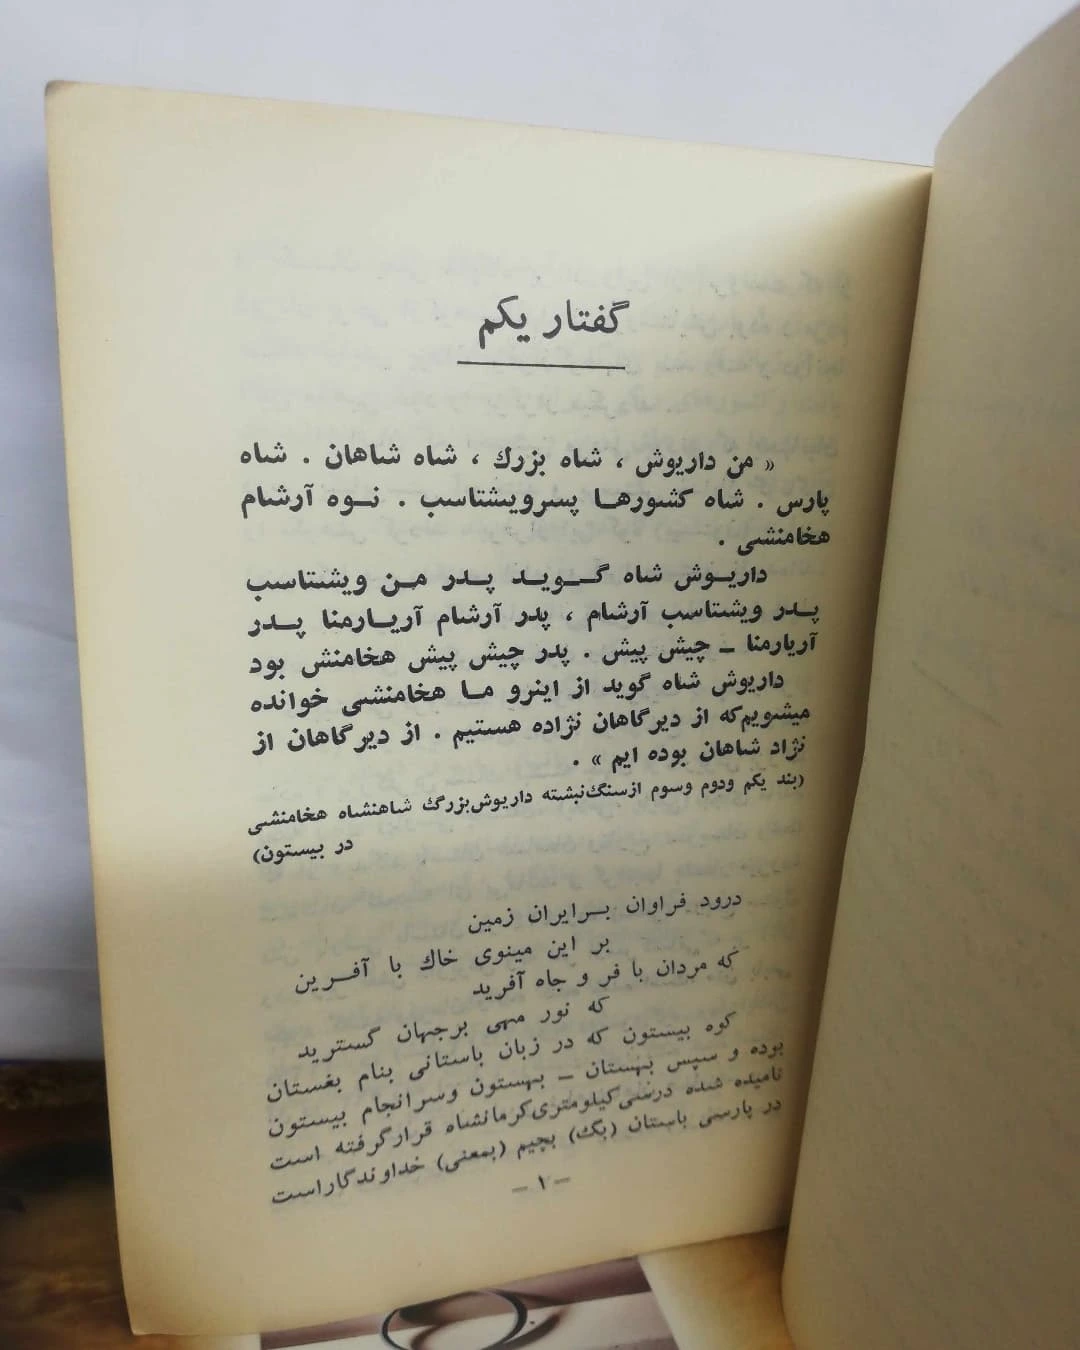 گفتار یکم
« من داریوش ، شاه بزرك ، شاه شاهان . شاه
پارس . شاه کشورهـا پسرویشتاسب . نـوه آرشام
هخامنشی .
داریـوش شاه گـویـد پـدر مـن ویشتاسب
پـدر ویشتاسب آرشام ، پدر آرشام آریـارمنا پـدر
آریارمنا ـ چیش پیش . پدر چیش پیش هخامنش بود
داریوش شاه گوید از اینرو مـا هخامنشی خوانده
میشویم‌که از دیرگاهان نژاده هستیم . از دیرگاهان از
نژاد شاهان بوده ایم » .
(بند یکم ودوم وسوم ازسنگ‌نبشته داریوش‌بزرگ شاهنشاه هخامنشی
در بیستون)
درود فراوان بـرایران زمین
بر این مینوی خاك با آفـرین
که مردان با فر و جاه آفرید
که نور مهی برجهان گسترید
کوه بیستون که در زبان باستانی بنام بغستان
بوده و سپس بهستان ـ بهستون وسرانجام بیستون
نامیده شده درسی‌کیلومتری‌کرمانشاه قرارگرفته است
در پارسی باستان (بگ) بچیم (بمعنی) خداوندگاراست
ـ ۱ ـ